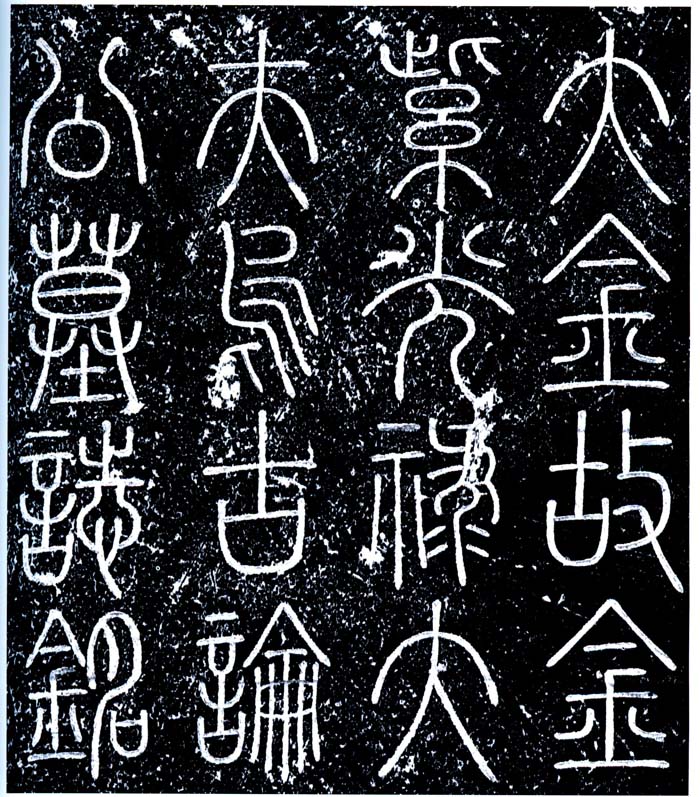 大金故金
紫光祿大
夫烏古論
公墓誌銘